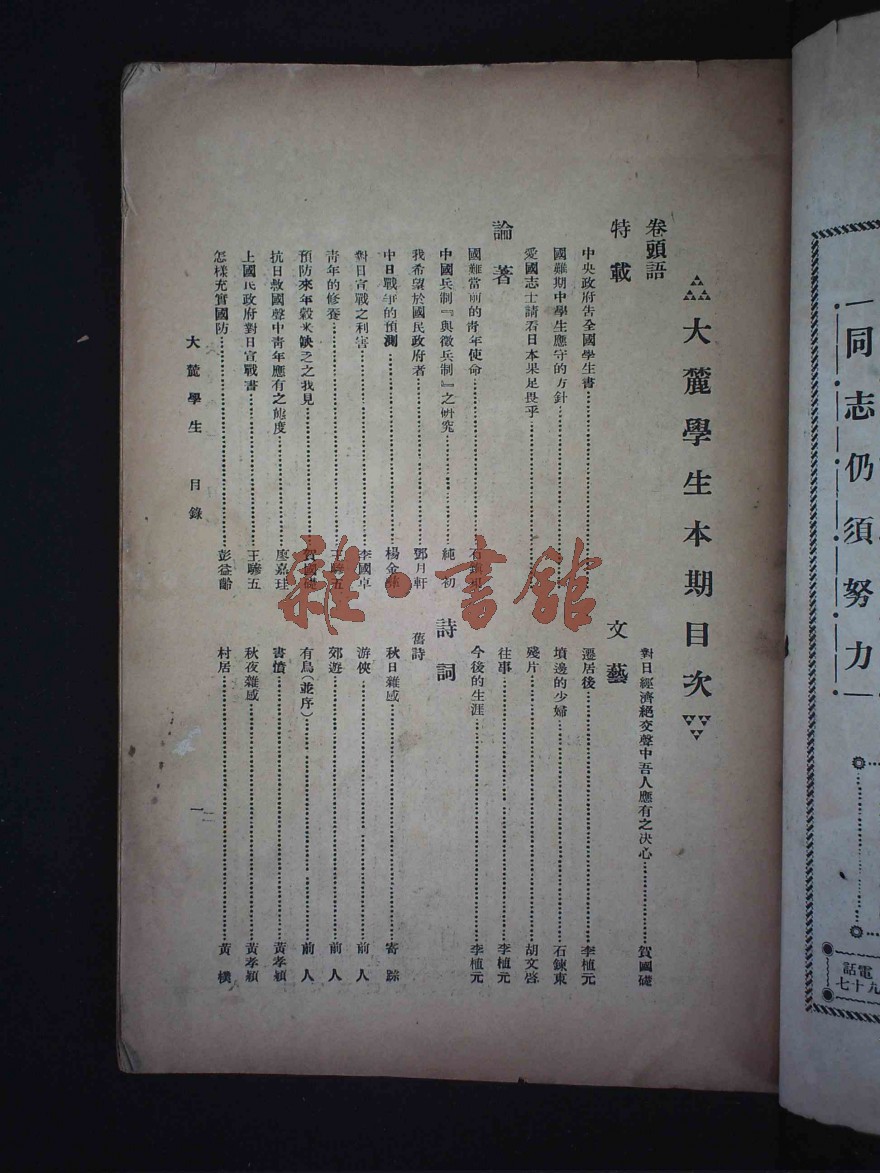 大麓學生本期目次
卷頭語
特載
中央政府告全國學生書
國難期中學生應守的方針
愛國志士請看日本果足畏乎
論著
國難當前的青年使命
中國兵制『與徵兵制』之研究 純初
我希望於國民政府者 鄧月軒
中日戰爭的預測 楊金
對日宣戰之利害 李國卓
青年的修養 王驂五
預防來年穀米缺乏之我見 賀國礎
抗日救國聲中青年應有之態度 廖嘉珪
上國民政府對日宣戰書 王驂五
怎樣充實國防 彭益齡
對日經濟絕交聲中吾人應有之決心 賀國礎
文藝
遷居後 李植元
墳邊的少婦 石鍊東
殘片 胡文啓
往事 李植元
今後的生涯 李植元
詩詞
舊詩
秋日雜感 寄踪
游俠 前人
郊遊 前人
有鳥(並序) 前人
書憤 黃孝潁
秋夜雜感 黃孝潁
村居 黃樸
大麓學生 目錄 一
雜·書館
同志仍須努力
電話
九十七